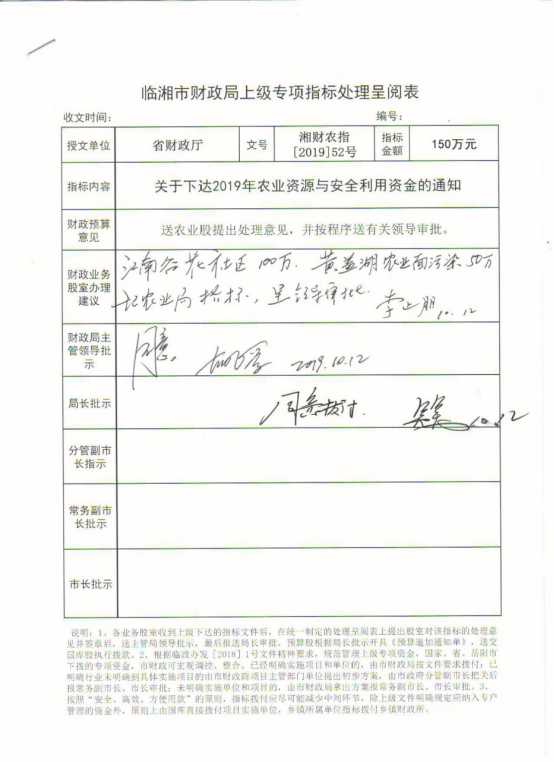 临湘市财政局上级专项指标处理呈阅表
收文时间： 编号：
授文单位 省财政厅 文号 湘财农指[2019]52号 指标金额 150万元
指标内容 关于下达2019年农业资源与安全利用资金的通知
财政预算意见 送农业股提出处理意见，并按程序送有关领导审批。
财政业务股室办理建议
江南谷花社区100万. 黄盖湖农业面污染50万
记农业局指标，呈领导审批.
李上朋 10.12
财政局主管领导批示 同意。 2019.10.12
局长批示 同意拨付. 10.12
分管副市长指示
常务副市长批示
市长批示
说明：1、各业务股室收到上级下达的指标文件后，在统一制定的处理呈阅表上提出股室对该指标的处理意
见并签章后，送主管局领导批示，最后报送局长审批。预算股根据局长批示开具《预算追加通知单》，送交
国库股执行拨款。2、根据临政办发［2018］1号文件精神要求，规范管理上级专项资金，国家、省、岳阳市
下拨的专项资金，市财政可宏观调控、整合。已经明确实施项目和单位的，由市财政局按文件要求拨付；已
明确行业未明确到具体实施项目的由市财政商项目主管部门单位提出初步方案，由市政府分管副市长把关后
报常务副市长、市长审批；未明确实施单位和项目的，由市财政局拿出方案报常务副市长、市长审批。3、
按照“安全、高效、方便用款”的原则，指标拨付应尽可能减少中间环节，除上级文件明确规定应纳入专户
管理的资金外，原则上由国库直接拨付项目实施单位，乡镇所属单位指标拨付乡镇财政所。